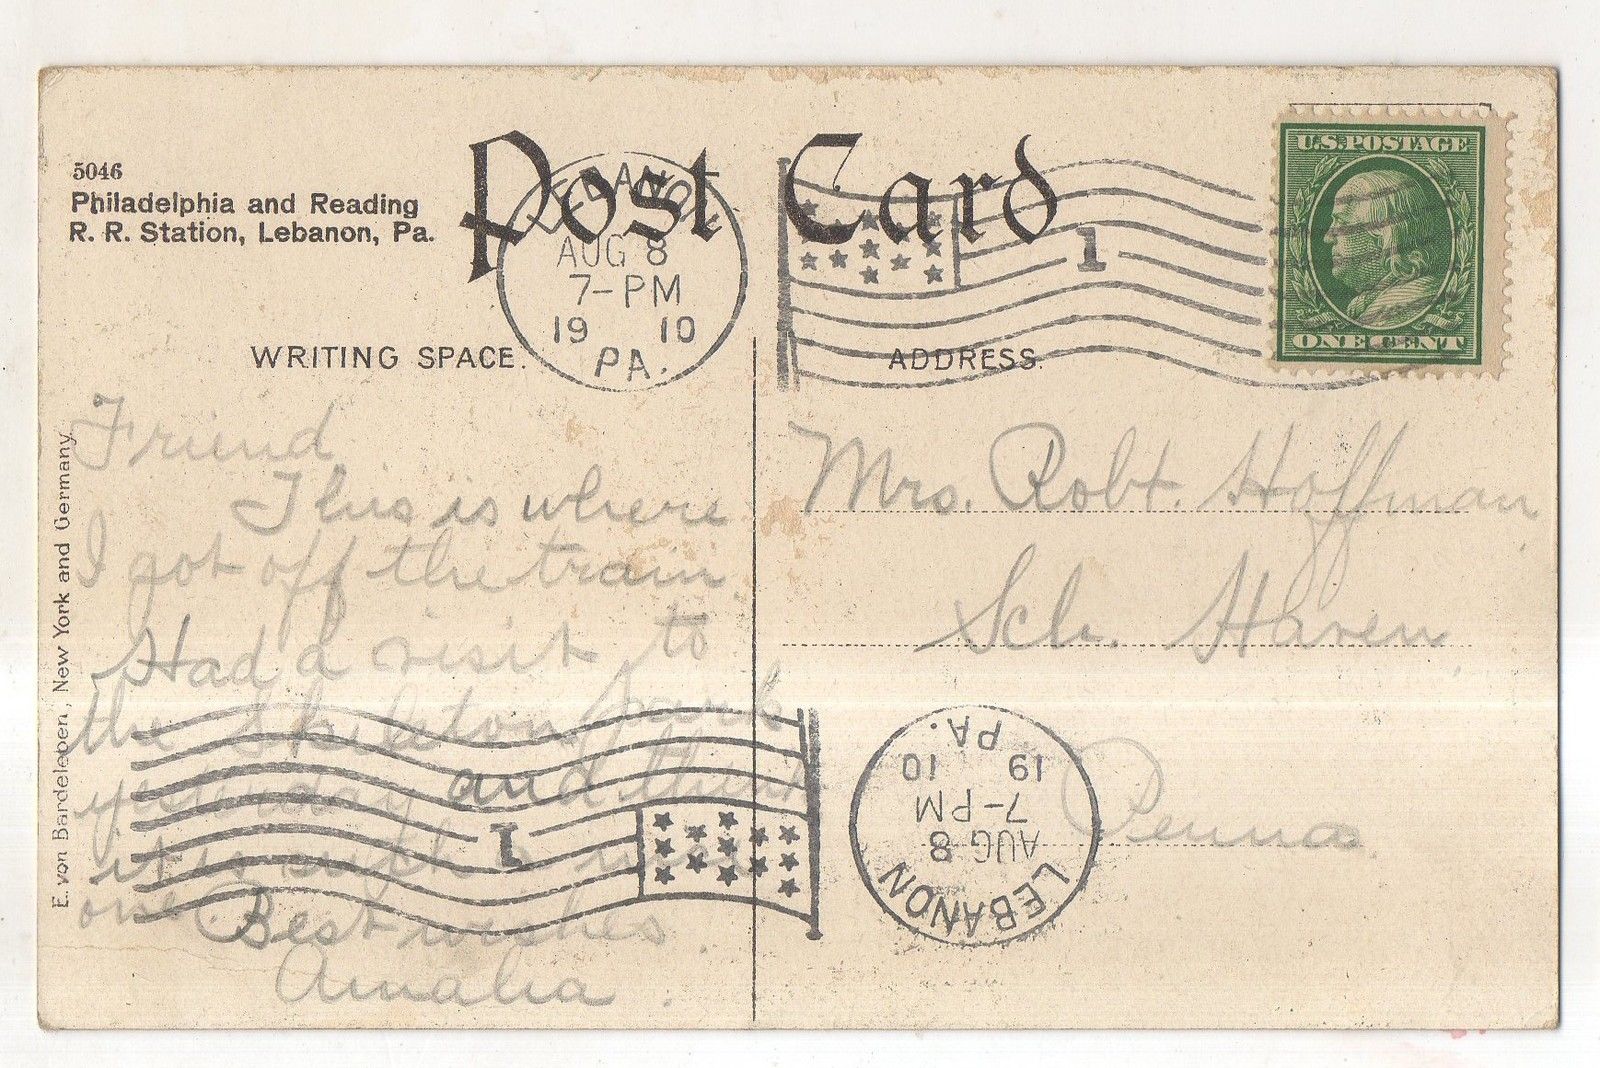 5046
Philadelphia and Reading
R. R. Station, Lebanon, Pa.
Post Card
U.S. POSTAGE
ONE CENT
LEBANON
AUG 8
7-PM
19 10
PA.
1
WRITING SPACE.
ADDRESS.
Friend
This is where
I got off the train.
Had a visit to
the Skeleton park
yesterday and think
it is such a nice
one. Best wishes.
Amalia.
Mrs. Robt. Hoffman
Sch. Haven,
Penna.
1
LEBANON
AUG 8
7-PM
19 10
PA.
E. von Bardeleben, New York and Germany.